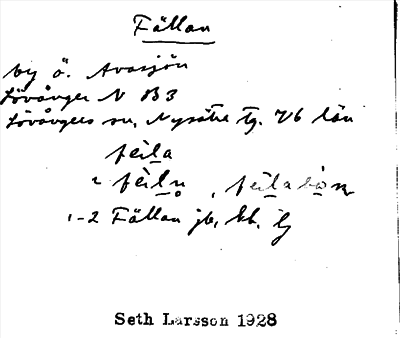 Fällan
by ö. Avasjön
Lövånger N B3
Lövångers sn, Nysätra tg. Vb län
feila
2 feiln̥, feilabón
1-2 Fällan jb, kb. lj
Seth Larsson 1928